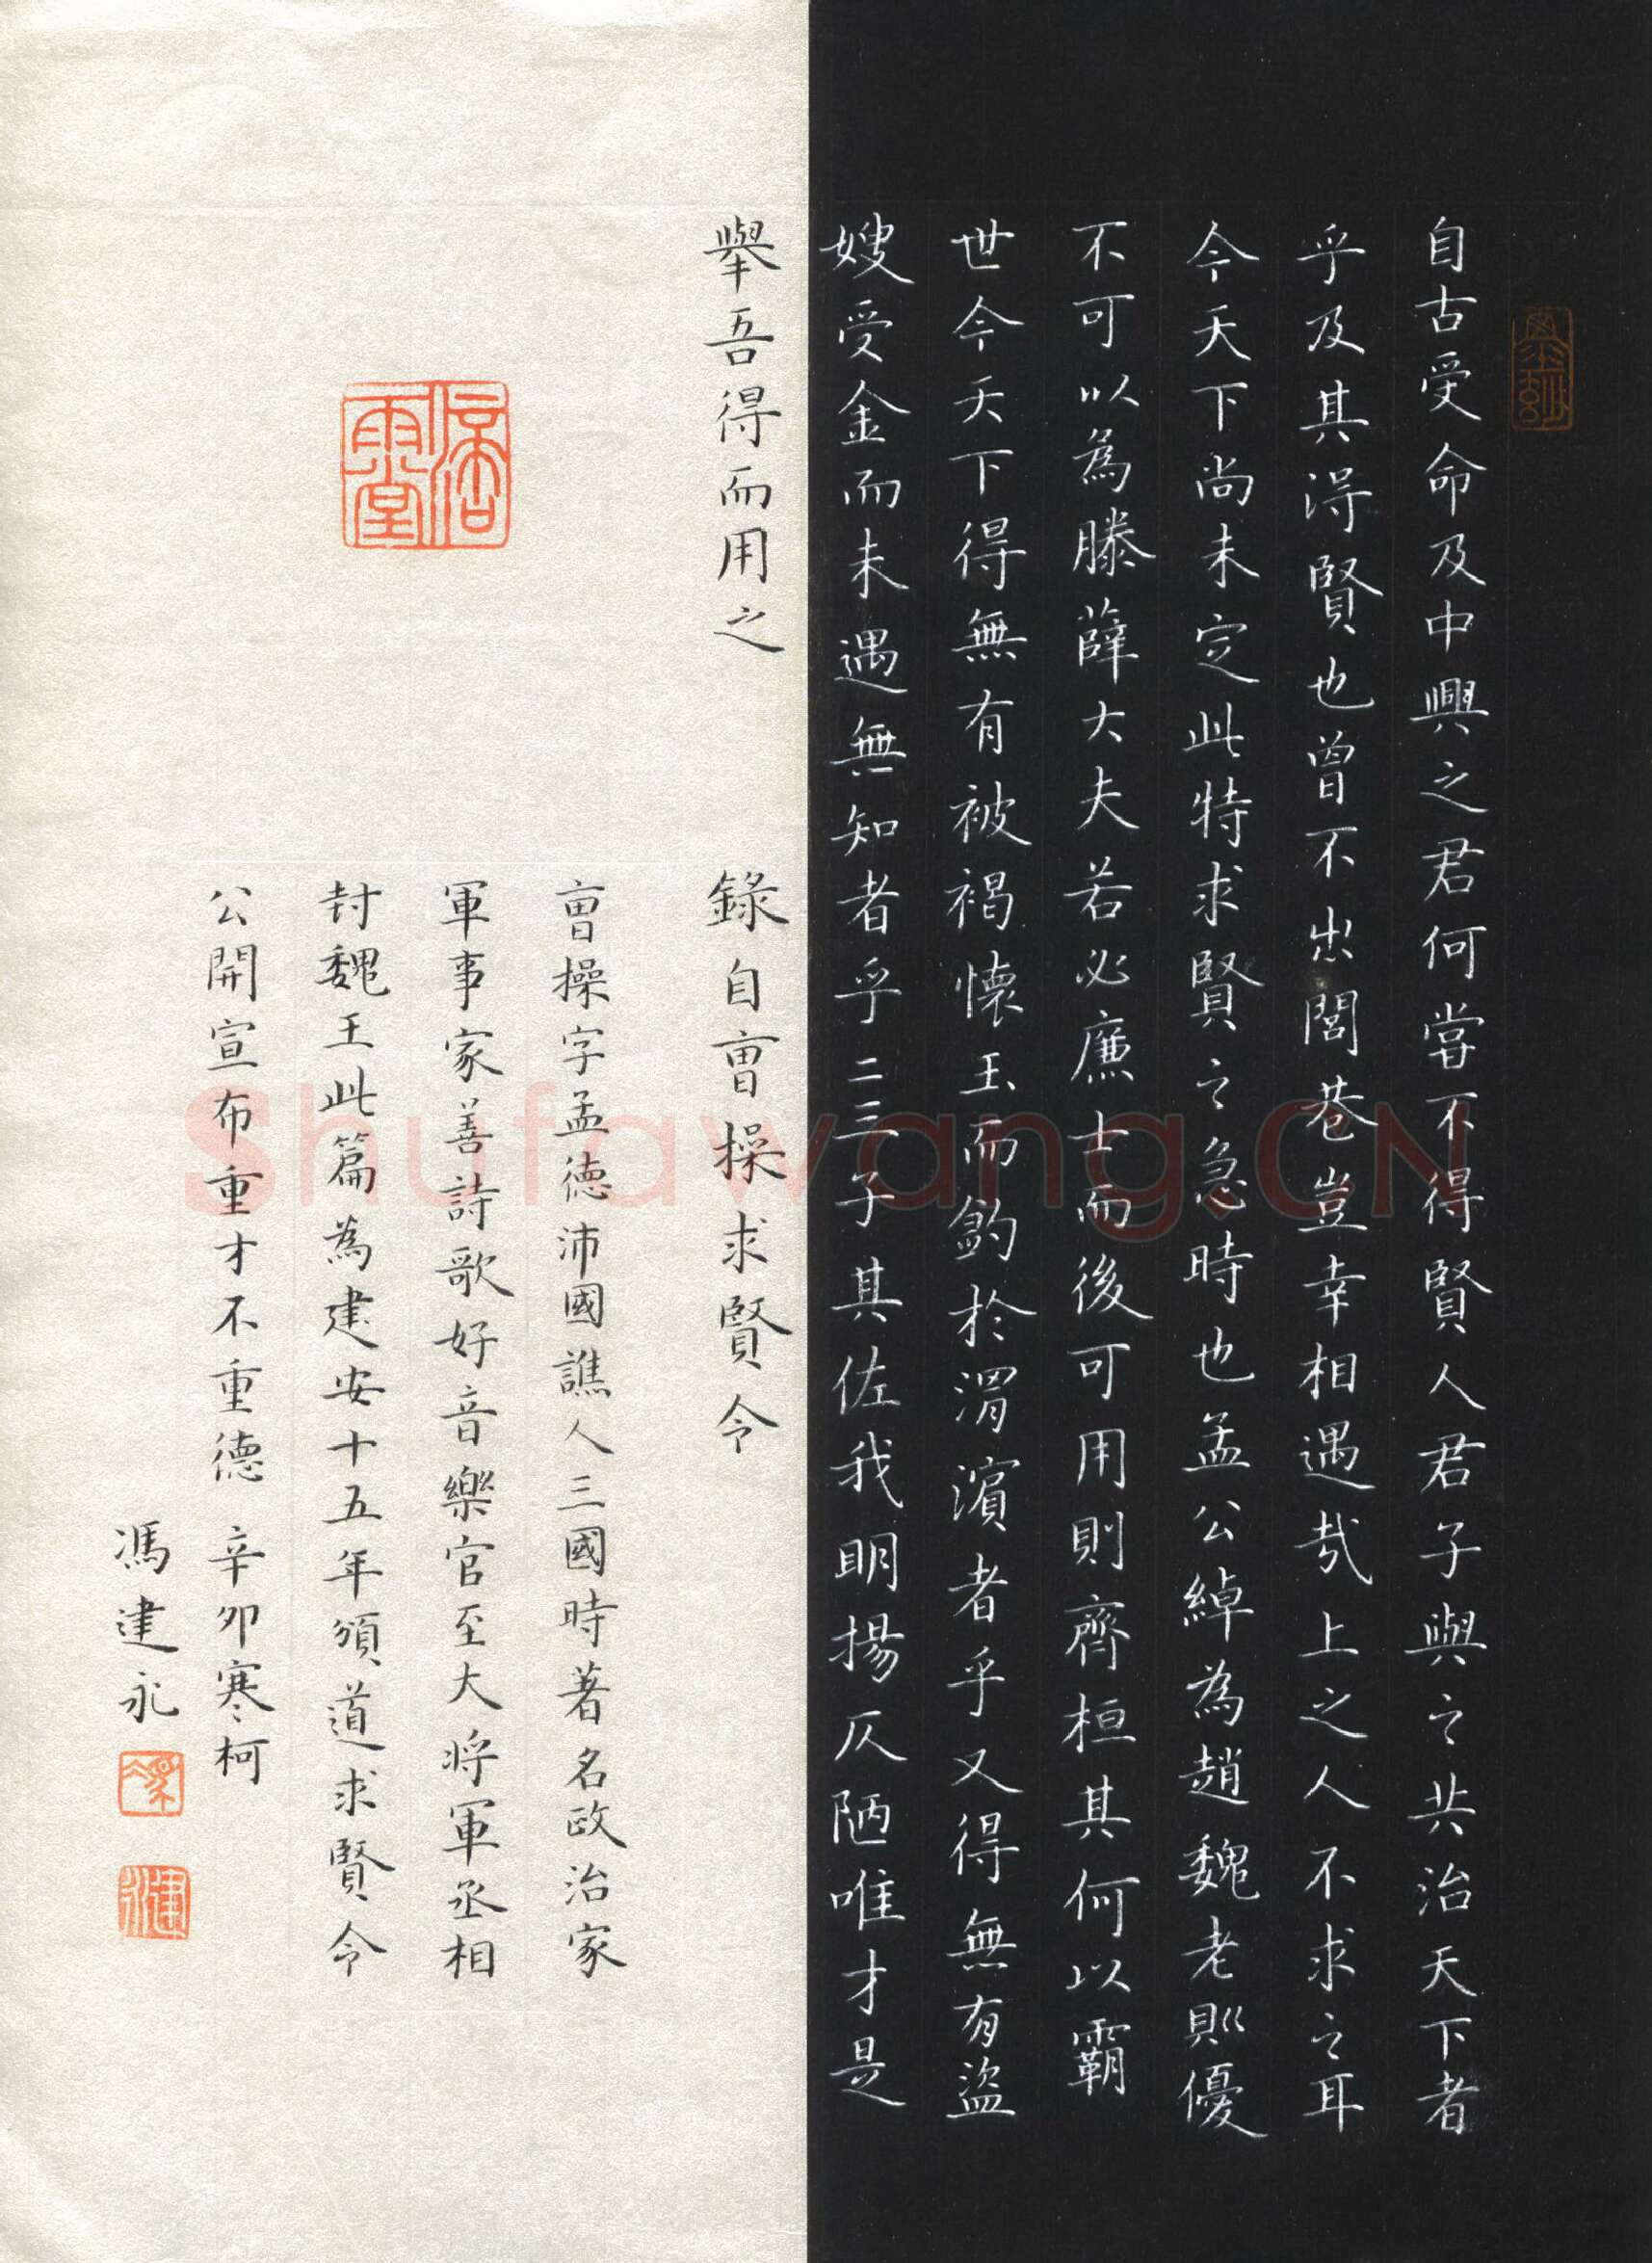 自古受命及中興之君何嘗不得賢人君子與之共治天下者
乎及其得賢也曾不出閭巷豈幸相遇哉上之人不求之耳
今天下尚未定此特求賢之急時也孟公綽為趙魏老則優
不可以為滕薛大夫若必廉士而後可用則齊桓其何以霸
世今天下得無有被褐懷玉而釣於渭濱者乎又得無有盜
嫂受金而未遇無知者乎二三子其佐我明揚仄陋唯才是
舉吾得而用之
錄自曹操求賢令
曹操字孟德沛國譙人三國時著名政治家
軍事家善詩歌好音樂官至大將軍丞相
封魏王此篇為建安十五年頒道求賢令
公開宣布重才不重德 辛卯寒柯
馮建永
Shufawang.CN